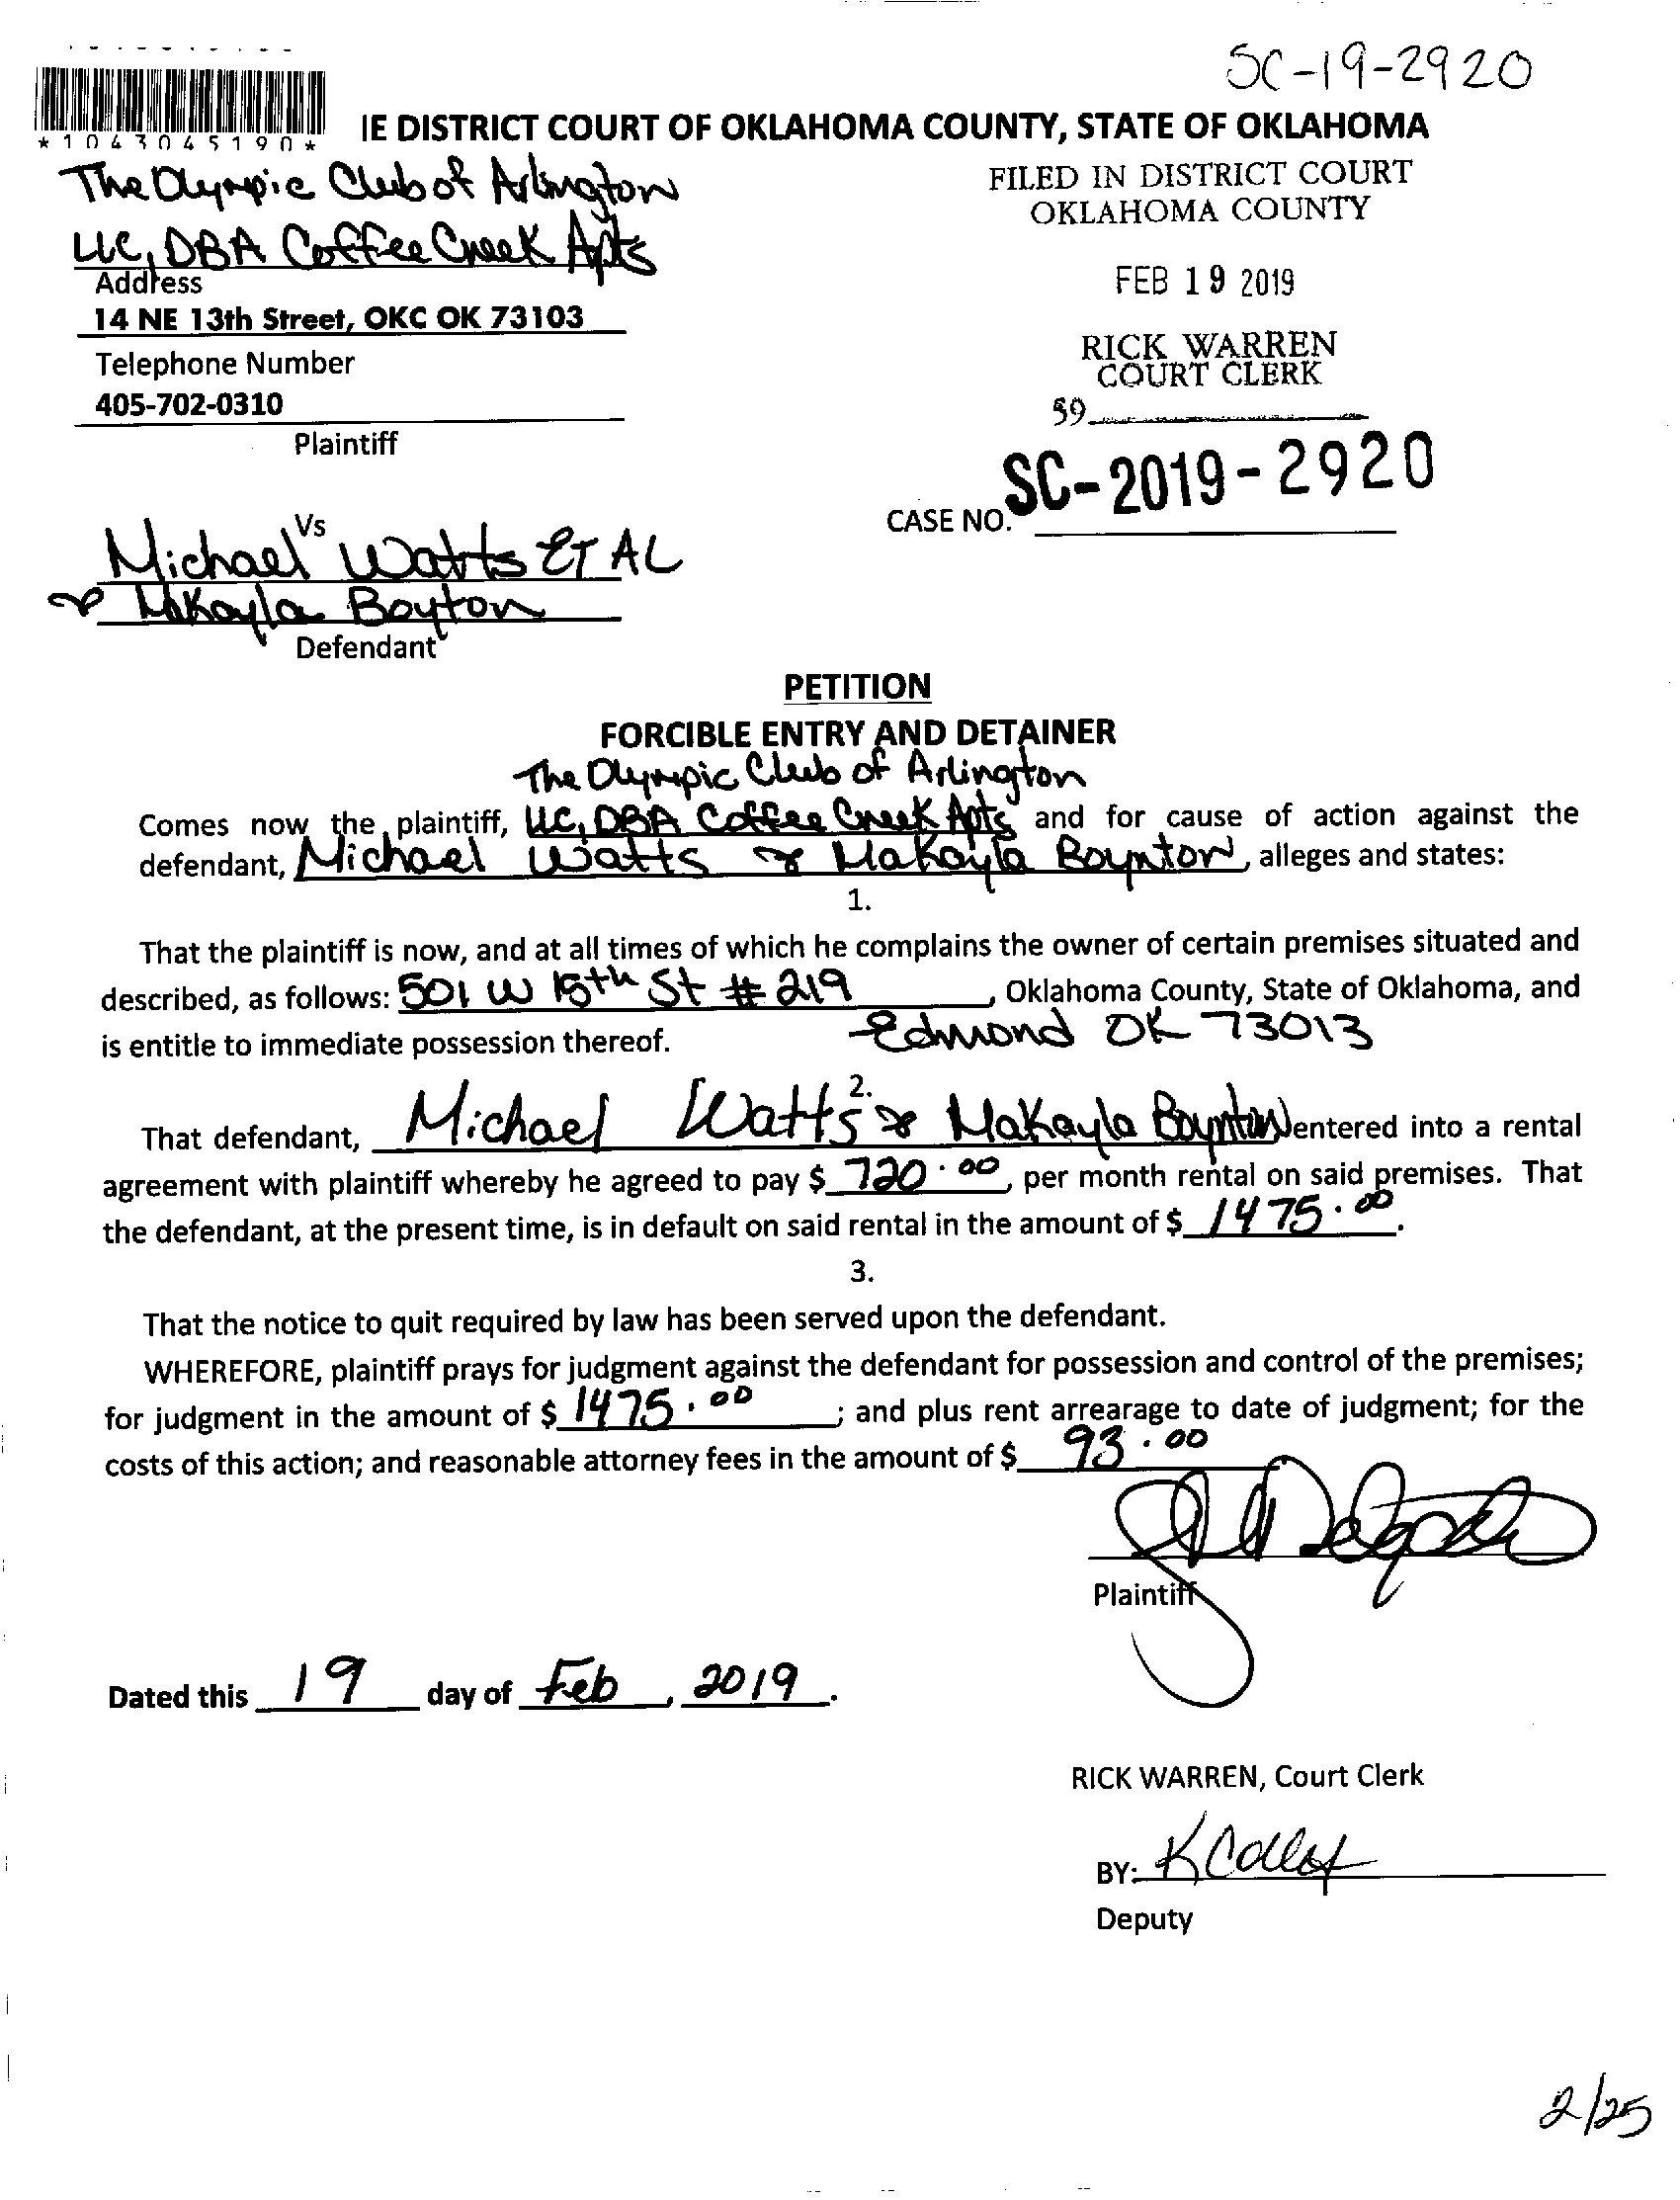 SC-19-2920
*1043045190*
IE DISTRICT COURT OF OKLAHOMA COUNTY, STATE OF OKLAHOMA
The Olympic Club of Arlington
LLC, DBA Coffee Creek Apts
Address
14 NE 13th Street, OKC OK 73103
Telephone Number
405-702-0310
Plaintiff
FILED IN DISTRICT COURT
OKLAHOMA COUNTY
FEB 19 2019
RICK WARREN
COURT CLERK
39
CASE NO. SC-2019-2920
Vs
Michael Watts ET AL
& Makayla Boyton
Defendant
PETITION
FORCIBLE ENTRY AND DETAINER
The Olympic Club of Arlington
Comes now the plaintiff, LLC, DBA Coffee Creek Apts and for cause of action against the
defendant, Michael Watts & Makayla Boynton, alleges and states:
1.
That the plaintiff is now, and at all times of which he complains the owner of certain premises situated and
described, as follows: 501 W 15th St # 219, Oklahoma County, State of Oklahoma, and
is entitle to immediate possession thereof. Edmond OK 73013
2.
That defendant, Michael Watts & Makayla Boynton entered into a rental
agreement with plaintiff whereby he agreed to pay $ 720.00, per month rental on said premises. That
the defendant, at the present time, is in default on said rental in the amount of $ 1475.00.
3.
That the notice to quit required by law has been served upon the defendant.
WHEREFORE, plaintiff prays for judgment against the defendant for possession and control of the premises;
for judgment in the amount of $ 1475.00; and plus rent arrearage to date of judgment; for the
costs of this action; and reasonable attorney fees in the amount of $ 93.00
Plaintiff
Dated this 19 day of Feb, 2019.
RICK WARREN, Court Clerk
BY:
Deputy
2/25